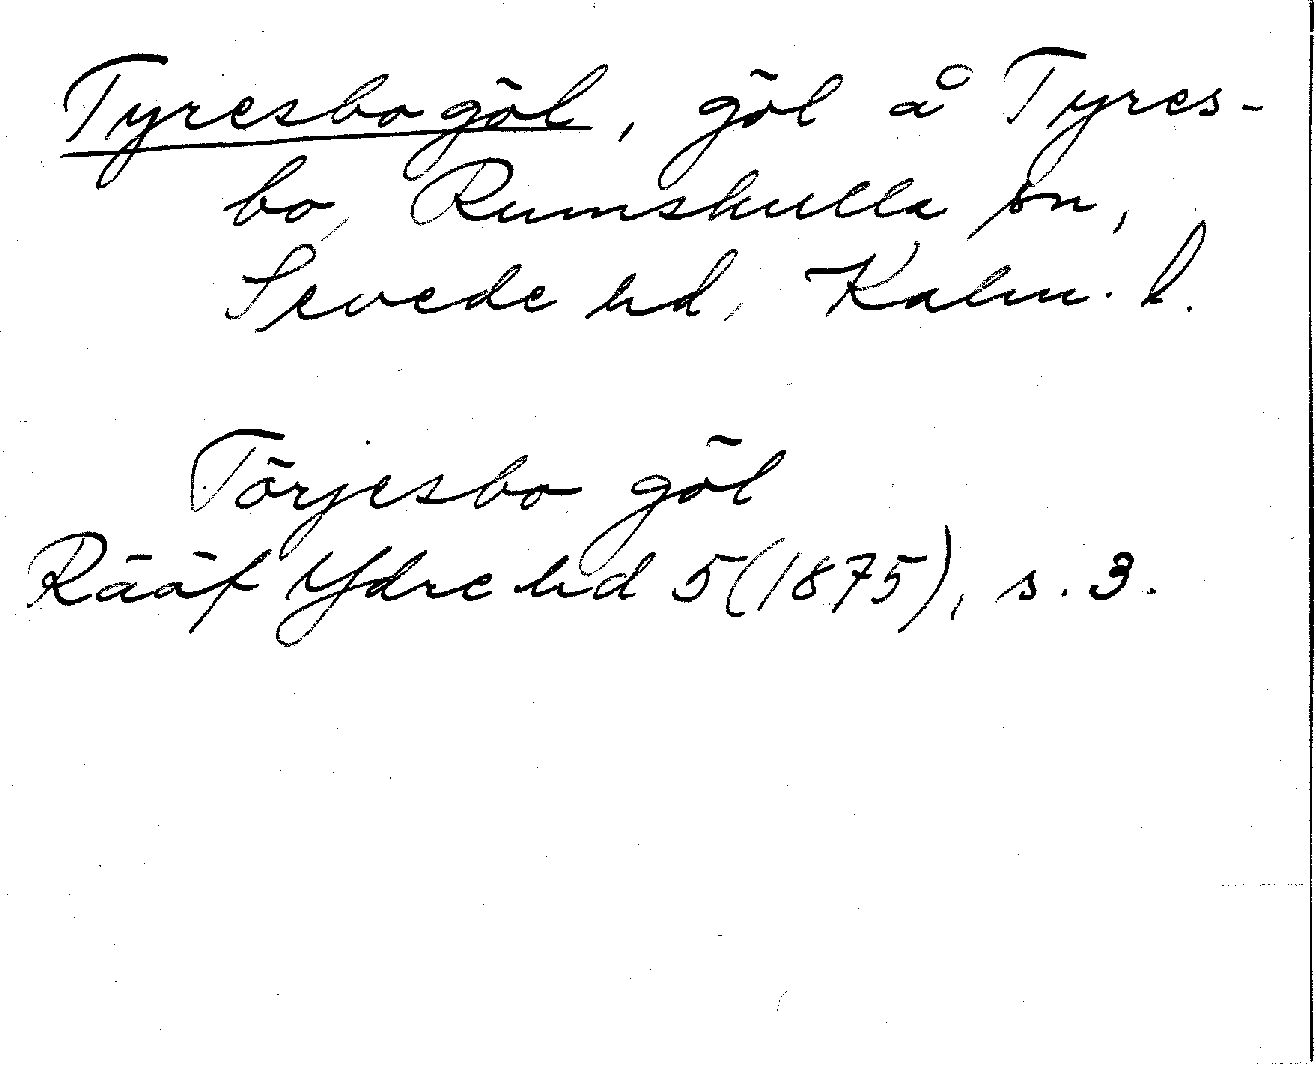 Tyresbogöl, göl å Tyres-
bo, Rumskulla sn,
Sevede hd, Kalm. l.
Törjesbo göl
Rääf Ydre hd 5(1875), s. 3.